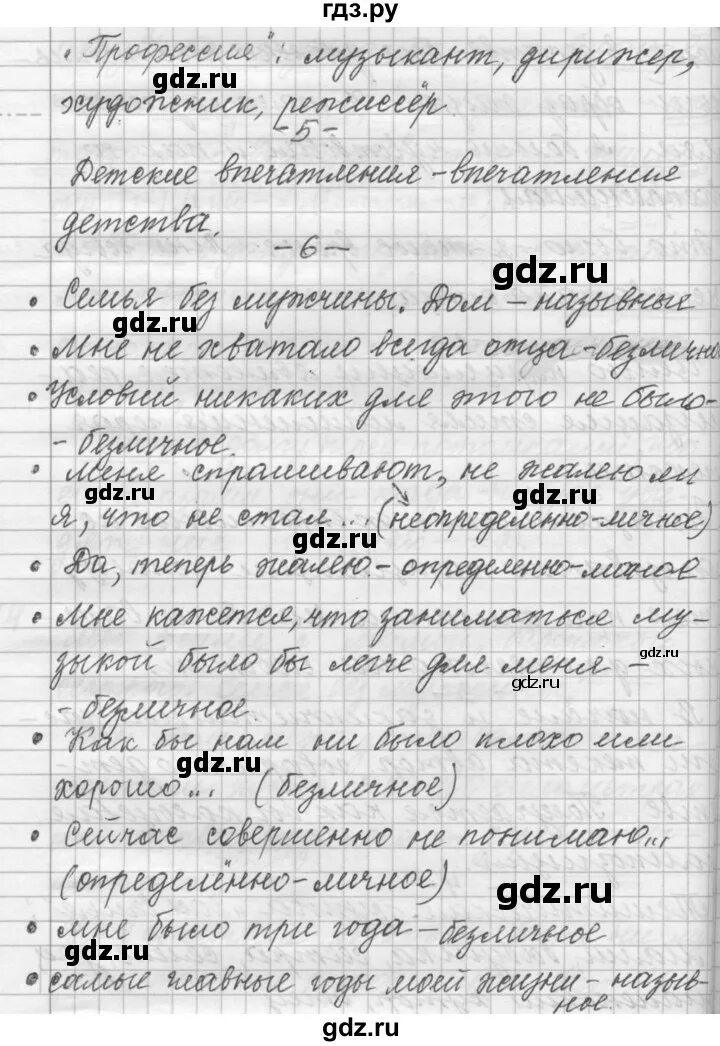 гдз.ру
„Профессия": музыкант, дирижер,
gdz.ru
художник, режиссёр.
-5-
Детские впечатления - впечатления
детства.
-6-
gdz.ru
• Семья без мужчины. Дом - назывные
gdz.ru
• Мне не хватало всегда отца - безлично
• Условий никаких для этого не было-
- безличное.
• Меня спрашивают, не жалею ли
gdz.ru
gdz.ru
я, что не стал... (неопределенно-личное)
gdz.ru
• Да, теперь жалею. - определенно-личное
• Мне кажется, что заниматься му-
зыкой было бы легче для меня -
gdz.ru
gdz.ru
- безличное.
• Как бы нам ни было плохо или
gdz.ru
хорошо... (безличное)
• Сейчас совершенно не понимаю...
(определённо-личное)
gdz.ru
• мне было три года - безличное
gdz.ru
• самые главные годы моей жизни - назыв-
ное.
gdz.ru